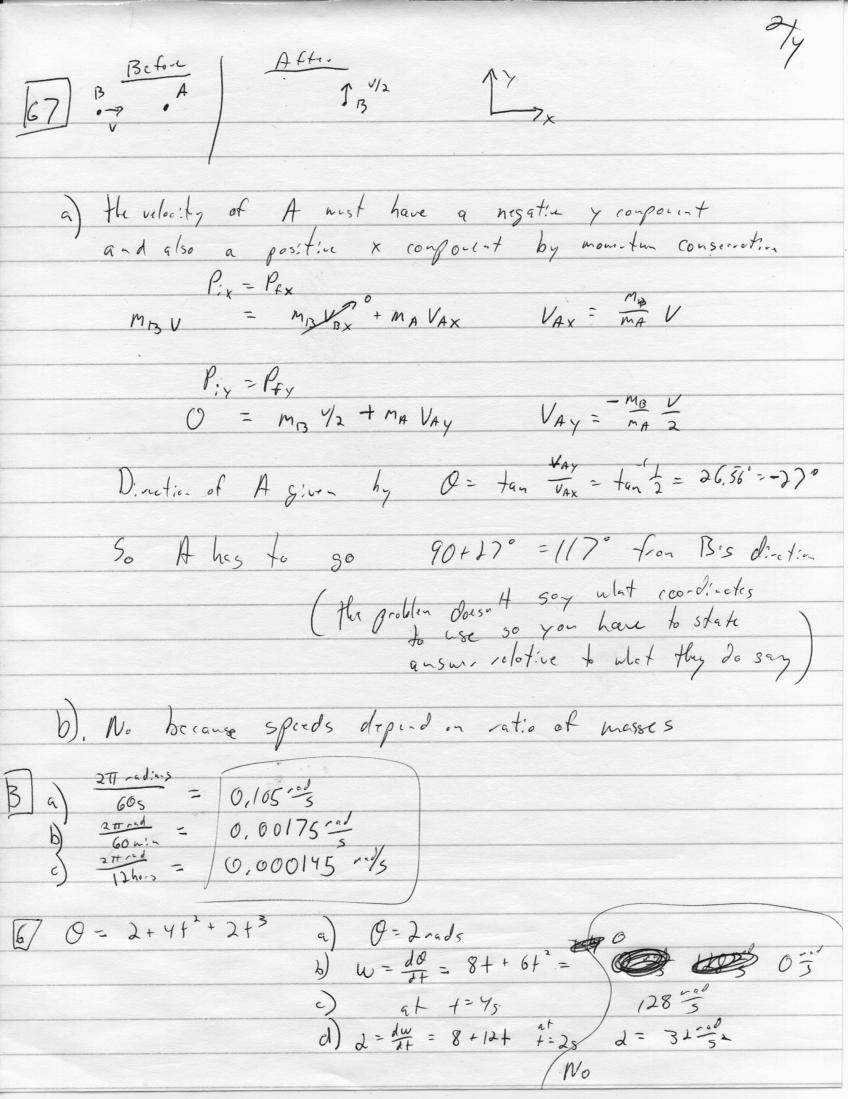 2/4
67 Before After
B A v/2 Y
v B x
a) the velocity of A must have a negative y component
and also a positive x component by momentum conservation
P_ix = P_fx
m_B V = m_B V_Bx 0 + m_A V_AX V_AX = m_B/m_A V
P_iy = P_fy
0 = m_B V/2 + m_A V_AY V_AY = -m_B/m_A V/2
Direction of A given by θ = tan V_AY/V_AX = tan^-1 1/2 = 26.56° = -27°
So A has to go 90+27° = 117° from B's direction
(the problem doesn't say what coordinates
to use so you have to state
answer relative to what they do say)
b). No because speeds depend on ratio of masses
3 a) 2π radians/60s = 0.105 rad/s
b) 2π rad/60 min = 0.00175 rad/s
c) 2π rad/12 hours = 0.000145 rad/s
6 θ = 2 + 4t² + 2t³ a) θ = 2 rads
b) w = dθ/dt = 8t + 6t² = 0 0 rad/s
c) at t = 4s 128 rad/s
d) α = dw/dt = 8 + 12t at t = 2s α = 32 rad/s²
No